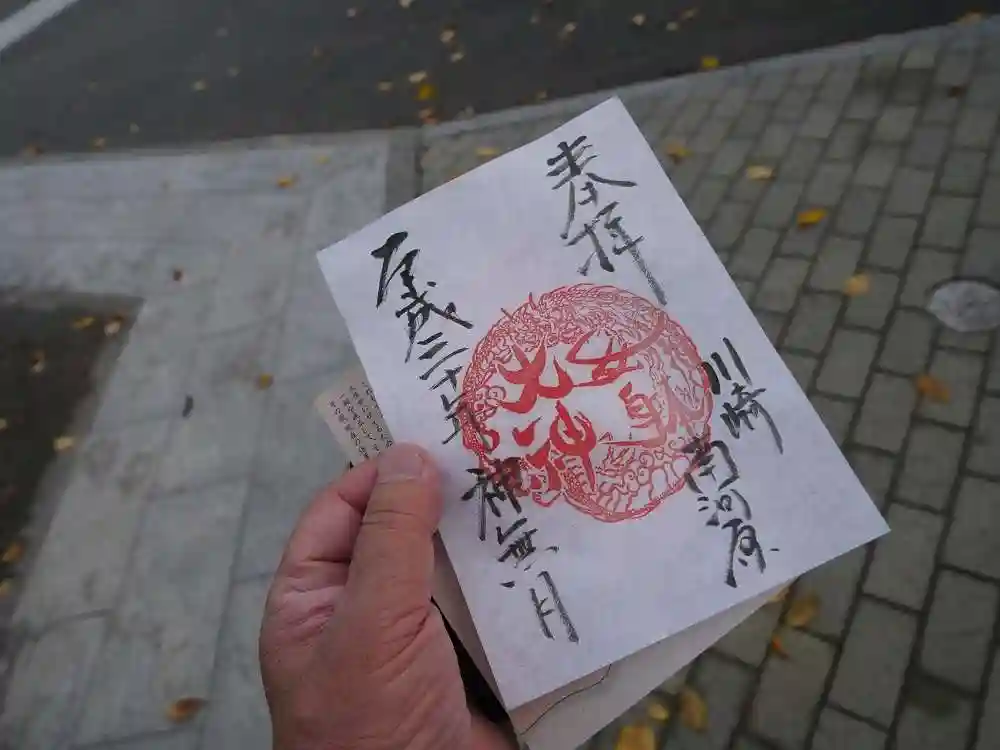 奉拝
川崎
南河原
女躰
大神
平成三十年
神無月